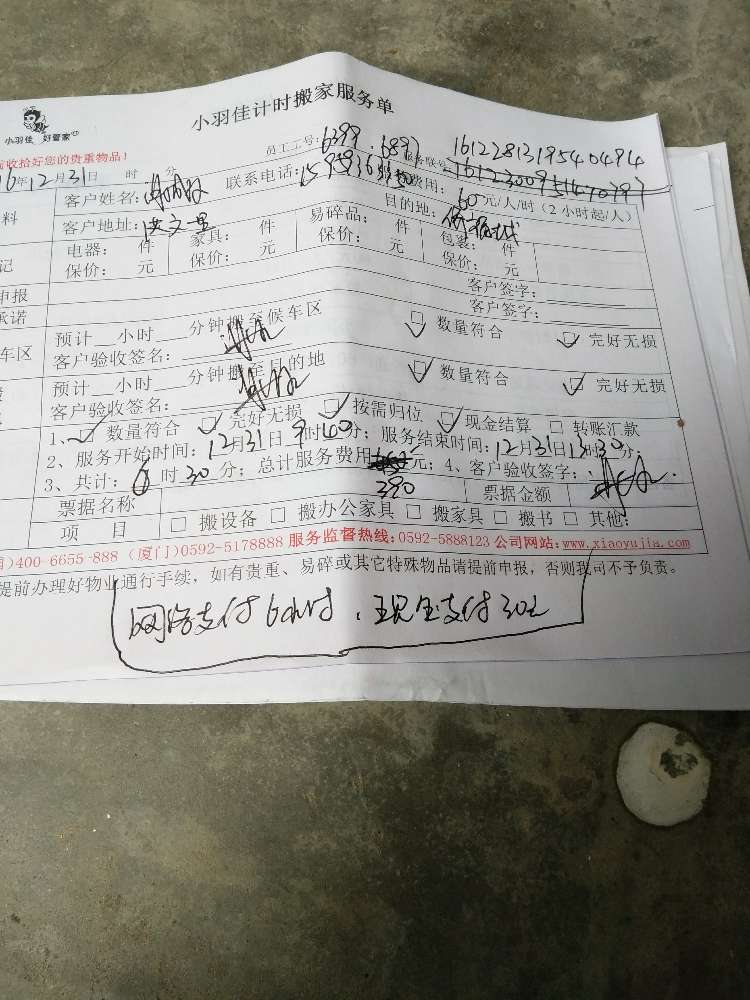 小羽佳计时搬家服务单
小羽佳 好管家
收拾好您的贵重物品!
员工工号: 6299.6897 服务联号 1612281319540494
16年12月31日 时 分
客户姓名: 联系电话: 费用: 60元/人/时(2小时起/人)
料 客户地址: 洪文一里 目的地:
电器: 件 家具: 件 易碎品: 件 包装: 件
记 保价: 元 保价: 元 保价: 元 保价: 元
申报 客户签字:
承诺 客户签字:
预计__小时__分钟搬至候车区 数量符合 完好无损
车区 客户验收签名:
预计__小时__分钟搬至目的地 数量符合 完好无损
客户验收签名:
1、 数量符合 完好无损 按需归位 现金结算 转账汇款
2、服务开始时间: 12月31日9时40分; 服务结束时间: 12月31日 时30分;
3、共计: 6时30分; 总计服务费用 390 元; 4、客户验收签字:
票据名称 票据金额
项 目 □ 搬设备 □ 搬办公家具 □ 搬家具 □ 搬书 □ 其他:
)400-6655-888 (厦门)0592-5178888 服务监督热线:0592-5888123 公司网站:www.xiaoyujia.com
提前办理好物业通行手续,如有贵重、易碎或其它特殊物品请提前申报,否则我司不予负责。
网络支付6小时,现金支付30元